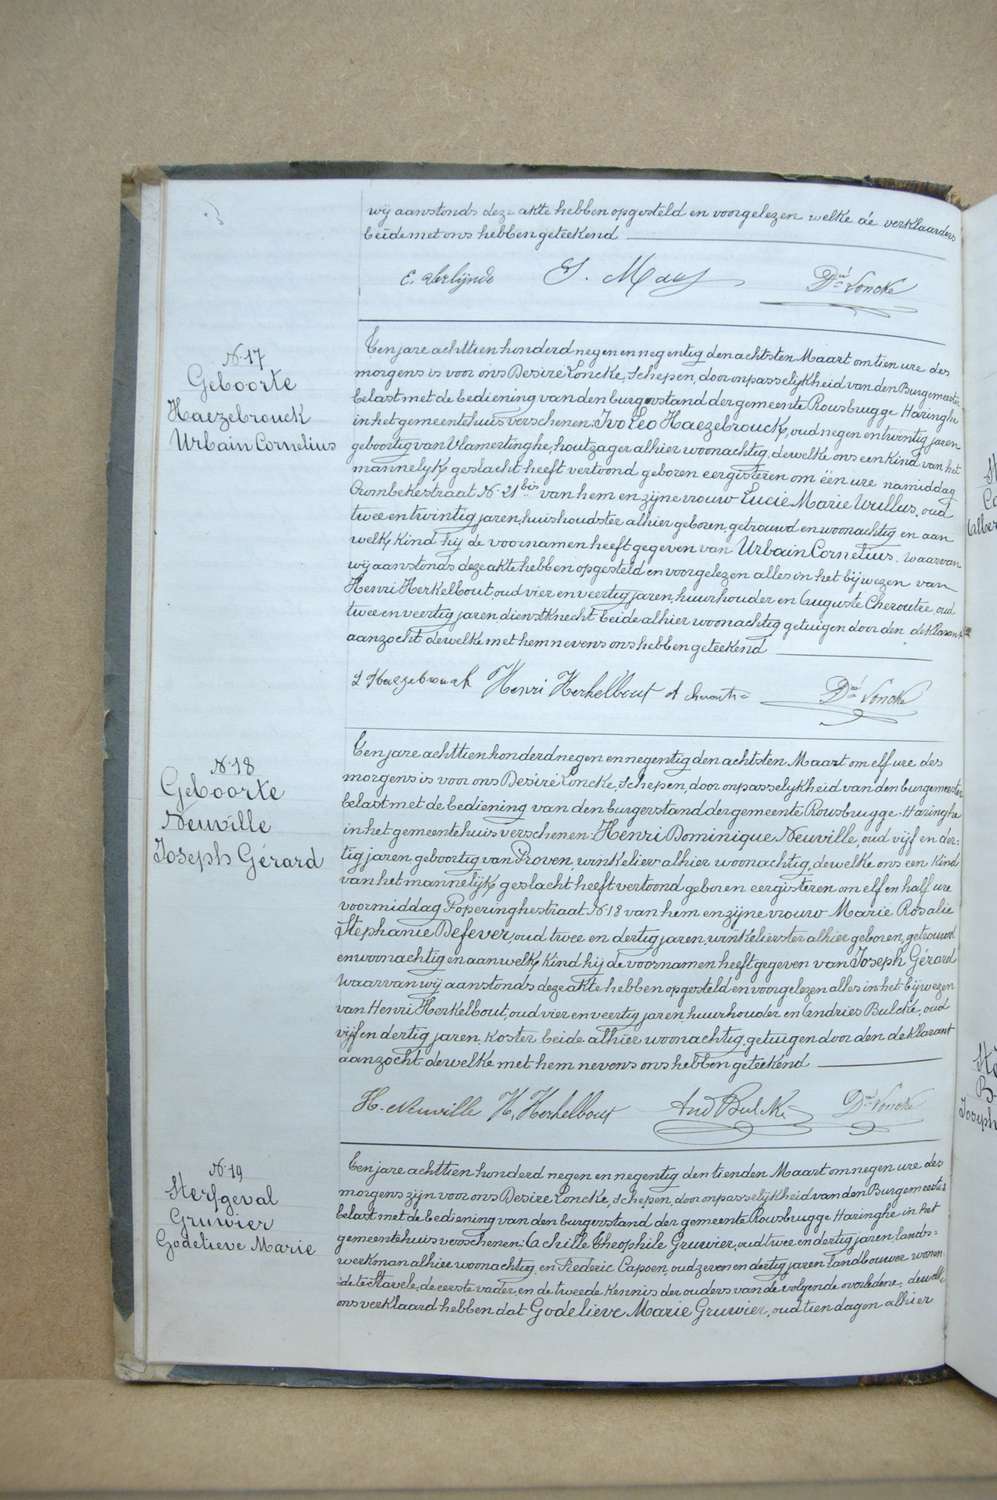 wij aanstonds deze akte hebben opgesteld en voorgelezen welke de verklaarders
beide met ons hebben geteekend
S. Maes Dré Loncke
N. 17
Geboorte
Haezebrouck
Urbain Cornelius
Ten jare achttien honderd negen en negentig den achtsten Maart om tien ure des
morgens is voor ons Desiré Loncke, Schepen, door onpasselijkheid van den Burgemeester
belast met de bediening van den burgerstand der gemeente Rousbrugge Haringhe
in het gemeentehuis verschenen Ivo Leo Haezebrouck, oud negen en twintig jaren
geboortig van Vlamertinghe, houtzager alhier woonachtig, dewelke ons een kind van het
mannelijk geslacht heeft vertoond geboren eergisteren om één ure namiddag
Crombekestraat N. 21bis van hem en zijne vrouw Lucie Marie Wullus, oud
twee en twintig jaren, huishoudster alhier geboren, getrouwd en woonachtig en aan
welk kind hij de voornamen heeft gegeven van Urbain Cornelius. waarvan
wij aanstonds deze akte hebben opgesteld en voorgelezen alles in het bijwezen van
Henri Herkelbout, oud vier en veertig jaren, huurhouder en Auguste Cheroutre, oud
twee en veertig jaren dienstknecht beide alhier woonachtig getuigen door den deklarant
aanzocht dewelke met hem nevens ons hebben geteekend
I Haezebrouck Henri Herkelbout A cheroutre Dré Loncke
N. 18
Geboorte
Neuville
Joseph Gérard
Ten jare achttien honderd negen en negentig den achtsten Maart om elf ure des
morgens is voor ons Desiré Loncke, Schepen, door onpasselijkheid van den burgemeester
belast met de bediening van den burgerstand der gemeente Rousbrugge-Haringhe
in het gemeentehuis verschenen Henri Dominique Neuville, oud vijf en der-
tig jaren geboortig van Proven, winkelier alhier woonachtig, dewelke ons een kind
van het mannelijk geslacht heeft vertoond geboren eergisteren om elf en half ure
voormiddag Poperinghestraat N. 18 van hem en zijne vrouw Marie Rosalie
Stéphanie Defever, oud twee en dertig jaren, winkelierster alhier geboren, getrouwd
en woonachtig en aan welk kind hij de voornamen heeft gegeven van Joseph Gérard
Waarvan wij aanstonds deze akte hebben opgesteld en voorgelezen alles in het bijwezen
van Henri Herkelbout, oud vier en veertig jaren huurhouder en Andries Bulcke, oud
vijf en dertig jaren, koster beide alhier woonachtig, getuigen door den deklarant
aanzocht dewelke met hem nevens ons hebben geteekend
H. Neuville H. Herkelbout And Bulcke Dré Loncke
N. 19
Sterfgeval
Gruwier
Godelieve Marie
Ten jare achttien honderd negen en negentig den tienden Maart om negen ure des
morgens zijn voor ons Desiré Loncke, Schepen, door onpasselijkheid van den Burgemeester
belast met de bediening van den burgerstand der gemeente Rousbrugge Haringhe in het
gemeentehuis verschenen: Achille Theophile Gruwier, oud twee en dertig jaren, lands-
werkman alhier woonachtig, en Frederic Capoen, oud zeven en dertig jaren landbouwer wonen
de te Stavele, de eerste vader en de tweede kennis der ouders van de volgende overledene, dewelke
ons verklaard hebben dat Godelieve Marie Gruwier, oud tien dagen alhier